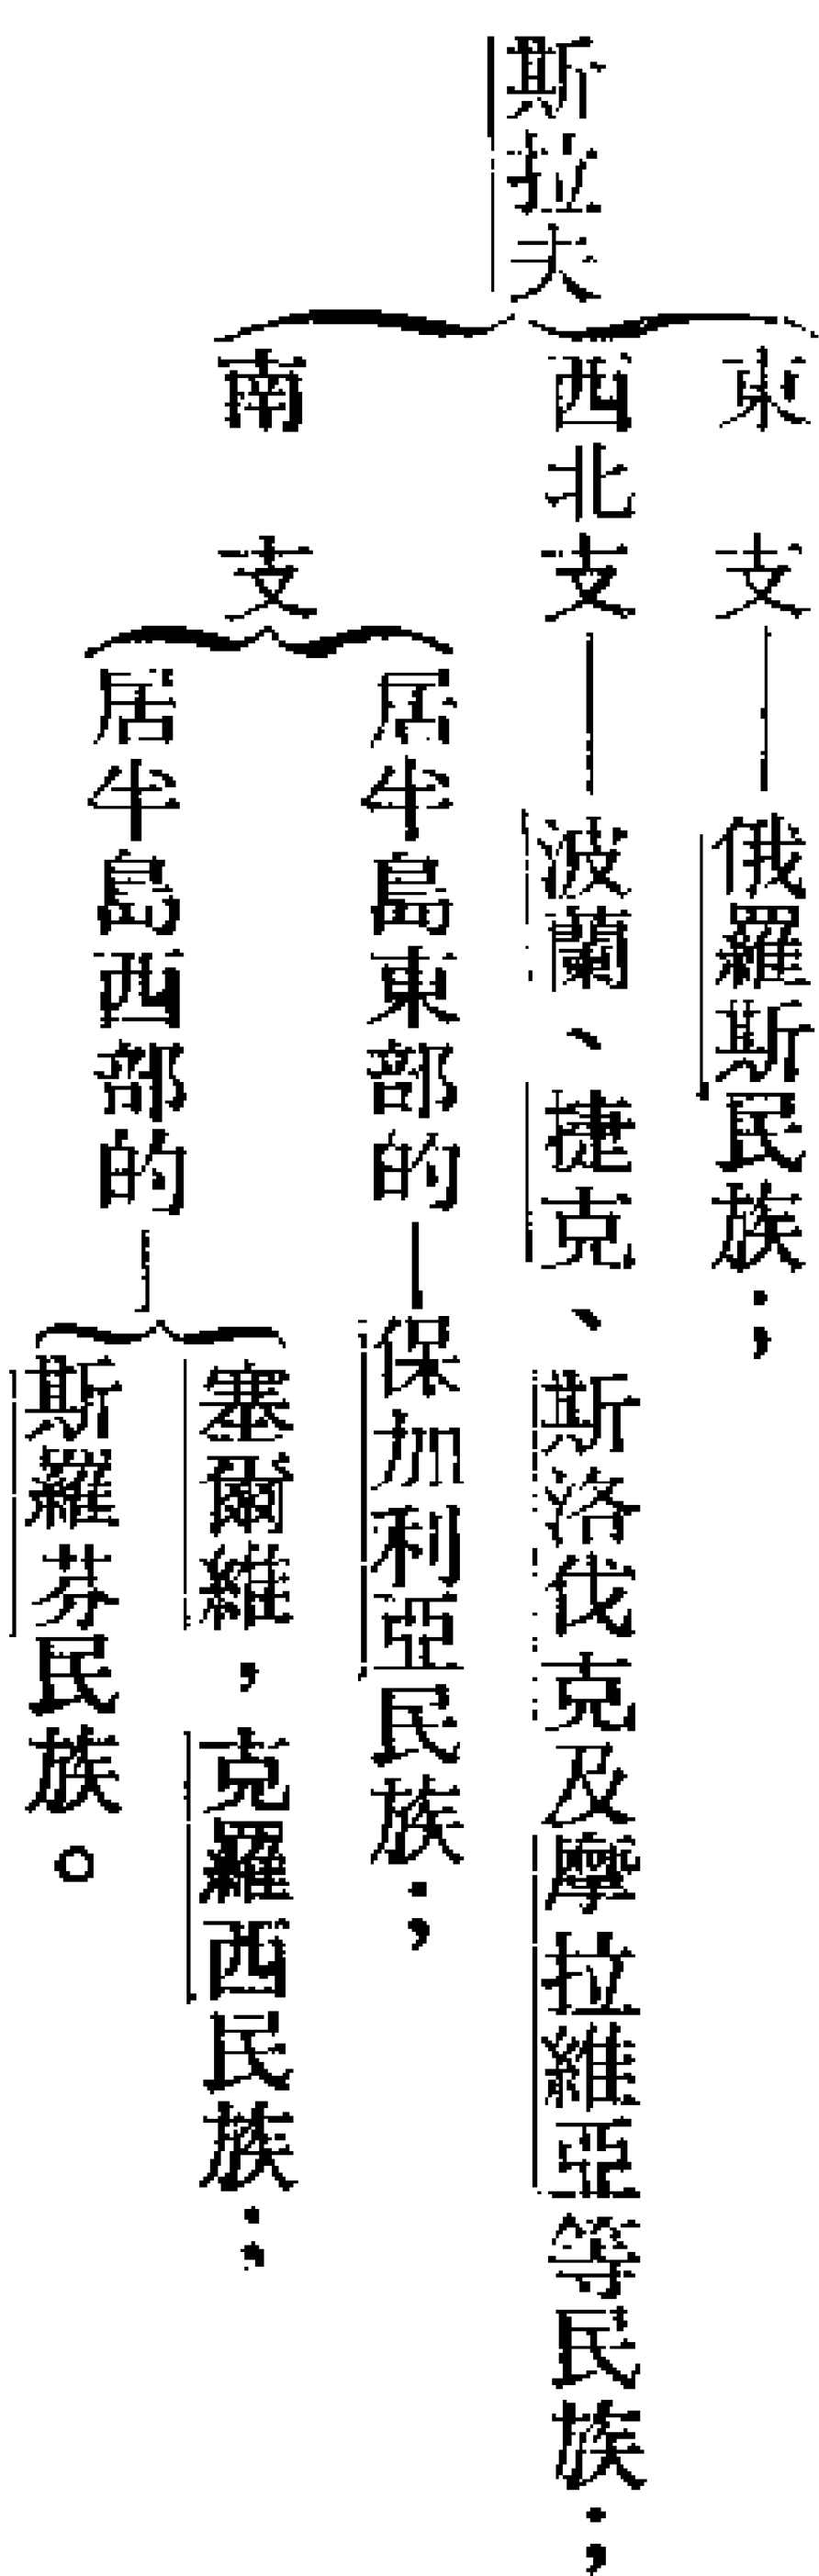 斯拉夫
東支——俄羅斯民族；
西北支——波蘭、捷克、斯洛伐克及摩拉維亞等民族；
南支
居半島東部的—保加利亞民族；
居半島西部的—
塞爾維，克羅西民族；
斯羅芬民族。